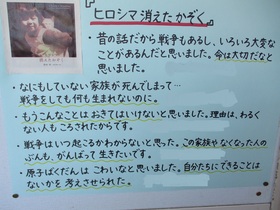 『ヒロシマ消えたかぞく』
・昔の話だから戦争もあるし、いろいろ大変な
ことがあるんだと思いました。今は大切だなと
思いました。
・なにもしていない家族が死んでしまって…
戦争をしても何も生まれないのに。
・もうこんなことは おきてはいけないと思いました。理由は、わるく
ない人もころされたからです。
・戦争はいつ起こるかわからないと思った。この家族やなくなった人の
ぶんも、がんばって生きたいです。
・原子ばくだんは こわいなと思いました。自分たちにできることは
ないかを 考えさせられた。